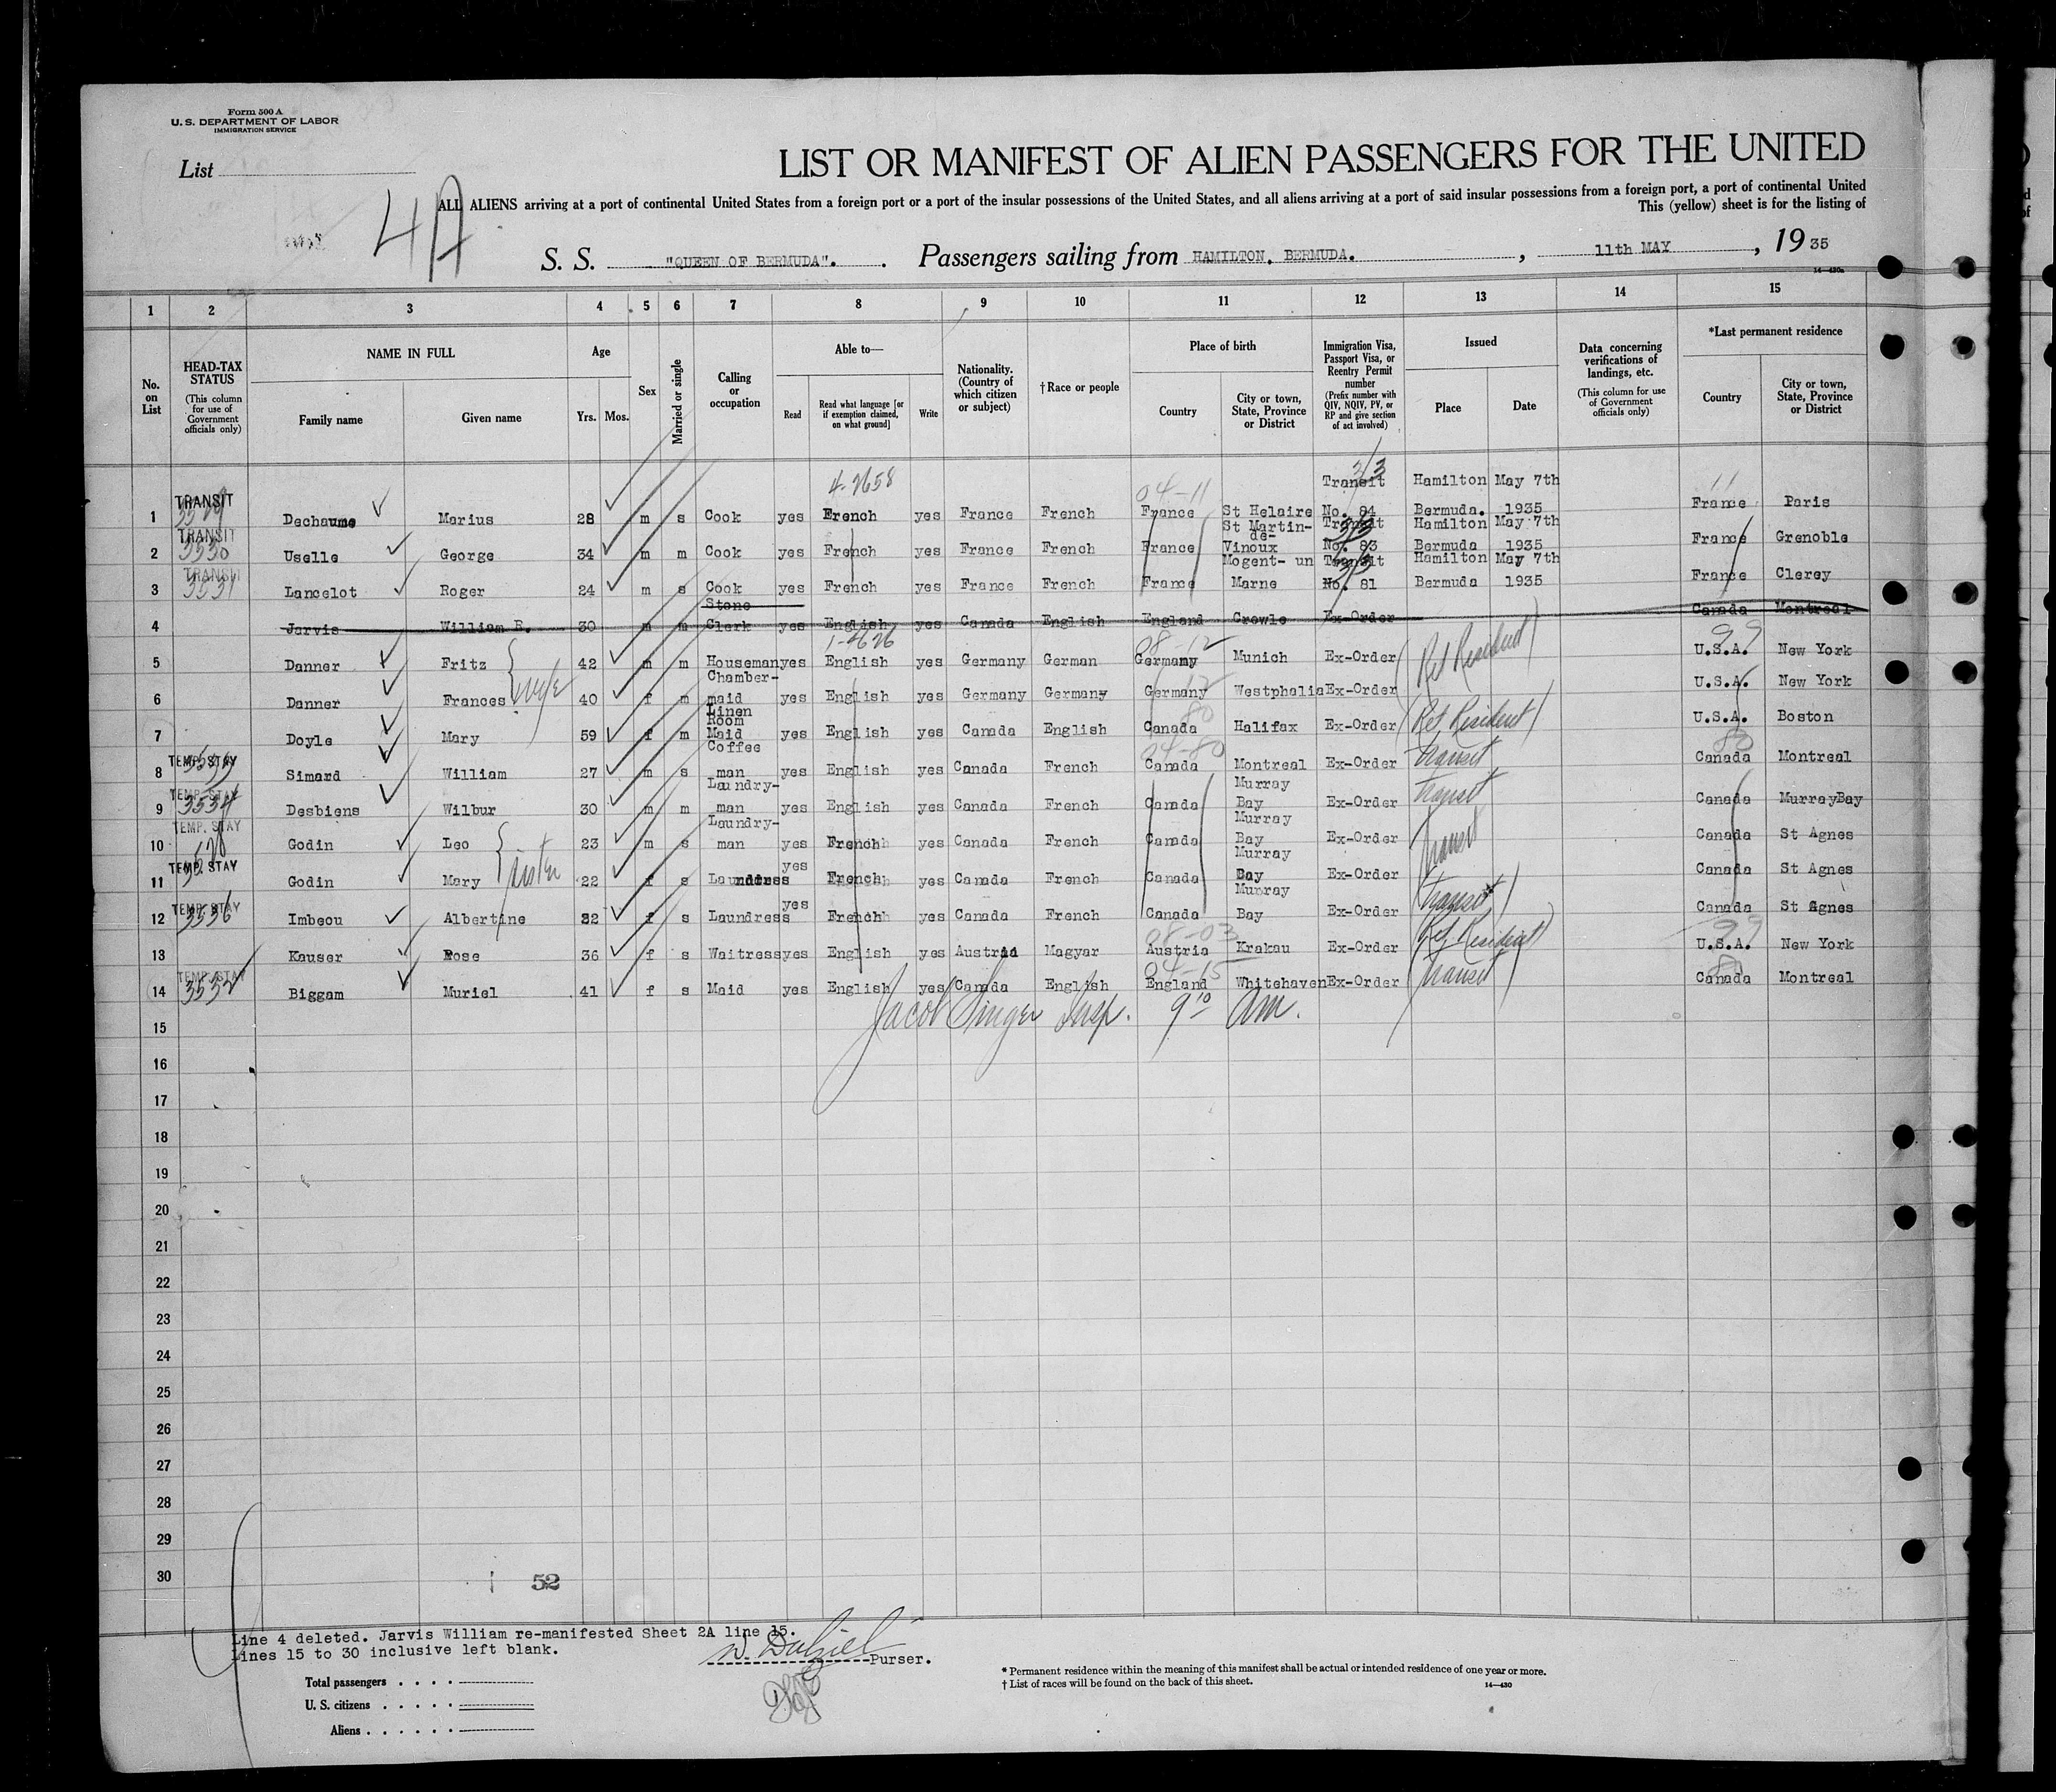 Form 500 A
U. S. DEPARTMENT OF LABOR
IMMIGRATION SERVICE
List
4A
LIST OR MANIFEST OF ALIEN PASSENGERS FOR THE UNITED
ALL ALIENS arriving at a port of continental United States from a foreign port or a port of the insular possessions of the United States, and all aliens arriving at a port of said insular possessions from a foreign port, a port of continental United
This (yellow) sheet is for the listing of
S. S. "QUEEN OF BERMUDA". Passengers sailing from HAMILTON, BERMUDA. , 11th MAY , 19 35
14-430a
1 2 3 4 5 6 7 8 9 10 11 12 13 14 15
No. on List
HEAD-TAX STATUS (This column for use of Government officials only)
NAME IN FULL Family name Given name
Age Yrs. Mos.
Sex
Married or single
Calling or occupation
Able to— Read Read what language [or if exemption claimed, on what ground] Write
Nationality. (Country of which citizen or subject)
† Race or people
Place of birth Country City or town, State, Province or District
Immigration Visa, Passport Visa, or Reentry Permit number (Prefix number with QIV, NQIV, PV, or RP and give section of act involved)
Issued Place Date
Data concerning verifications of landings, etc. (This column for use of Government officials only)
*Last permanent residence Country City or town, State, Province or District
4-2658 04-11 3/3 11
1 TRANSIT Dechaume Marius 28 m s Cook yes French yes France French France St Helaire Transit No. 84 Hamilton Bermuda. May 7th 1935 France Paris
2 TRANSIT 3530 Uselle George 34 m m Cook yes French yes France French France St Martin-de-Vinoux Transit No. 83 Hamilton Bermuda May 7th 1935 France Grenoble
3 TRANSIT 3531 Lancelot Roger 24 m s Cook yes French yes France French France Mogent- un Marne Transit No. 81 Hamilton Bermuda May 7th 1935 France Clerey
4 Jarvis William R. 30 m m Stone Clerk yes English yes Canada English England Crowle Ex-Order Canada Montreal
1-4626 08-12 99
5 Danner Fritz 42 m m Houseman yes English yes Germany German Germany Munich Ex-Order Ret Resident U.S.A. New York
wife
6 Danner Frances 40 f m Chamber-maid yes English yes Germany Germany Germany Westphalia Ex-Order U.S.A. New York
7 Doyle Mary 59 f m Linen Room Maid yes English yes Canada English Canada 80 Halifax Ex-Order Ret. Resident U.S.A. Boston
8 TEMP. STAY Simard William 27 m s Coffee man yes English yes Canada French 04-80 Canada Montreal Ex-Order Transit 80 Canada Montreal
9 TEMP. STAY 3534 Desbiens Wilbur 30 m m Laundry-man yes English yes Canada French Canada Murray Bay Ex-Order Transit Canada MurrayBay
10 TEMP. STAY Godin Leo 23 m s Laundry-man yes French yes Canada French Canada Murray Bay Ex-Order Transit Canada St Agnes
sister
11 TEMP. STAY Godin Mary 22 f s Laundress yes French yes Canada French Canada Murray Bay Ex-Order Canada St Agnes
12 TEMP. STAY 3536 Imbeou Albertine 32 f s Laundress yes French yes Canada French Canada Murray Bay Ex-Order Transit Canada St Agnes
13 Kauser Rose 36 f s Waitress yes English yes Austria Magyar 08-03 Austria Krakau Ex-Order Ret. Resident 99 U.S.A. New York
14 TEMP. STAY 3532 Biggam Muriel 41 f s Maid yes English yes Canada English 04-15 England Whitehaven Ex-Order Transit 80 Canada Montreal
Jacob Singer Insp. 9 10 am.
15
16
17
18
19
20
21
22
23
24
25
26
27
28
29
30
52
Line 4 deleted. Jarvis William re-manifested Sheet 2A line 15.
Lines 15 to 30 inclusive left blank.
W. Dalziel Purser.
Total passengers . . . .
U. S. citizens . . . . .
Aliens . . . . . .
* Permanent residence within the meaning of this manifest shall be actual or intended residence of one year or more.
† List of races will be found on the back of this sheet.
14-430